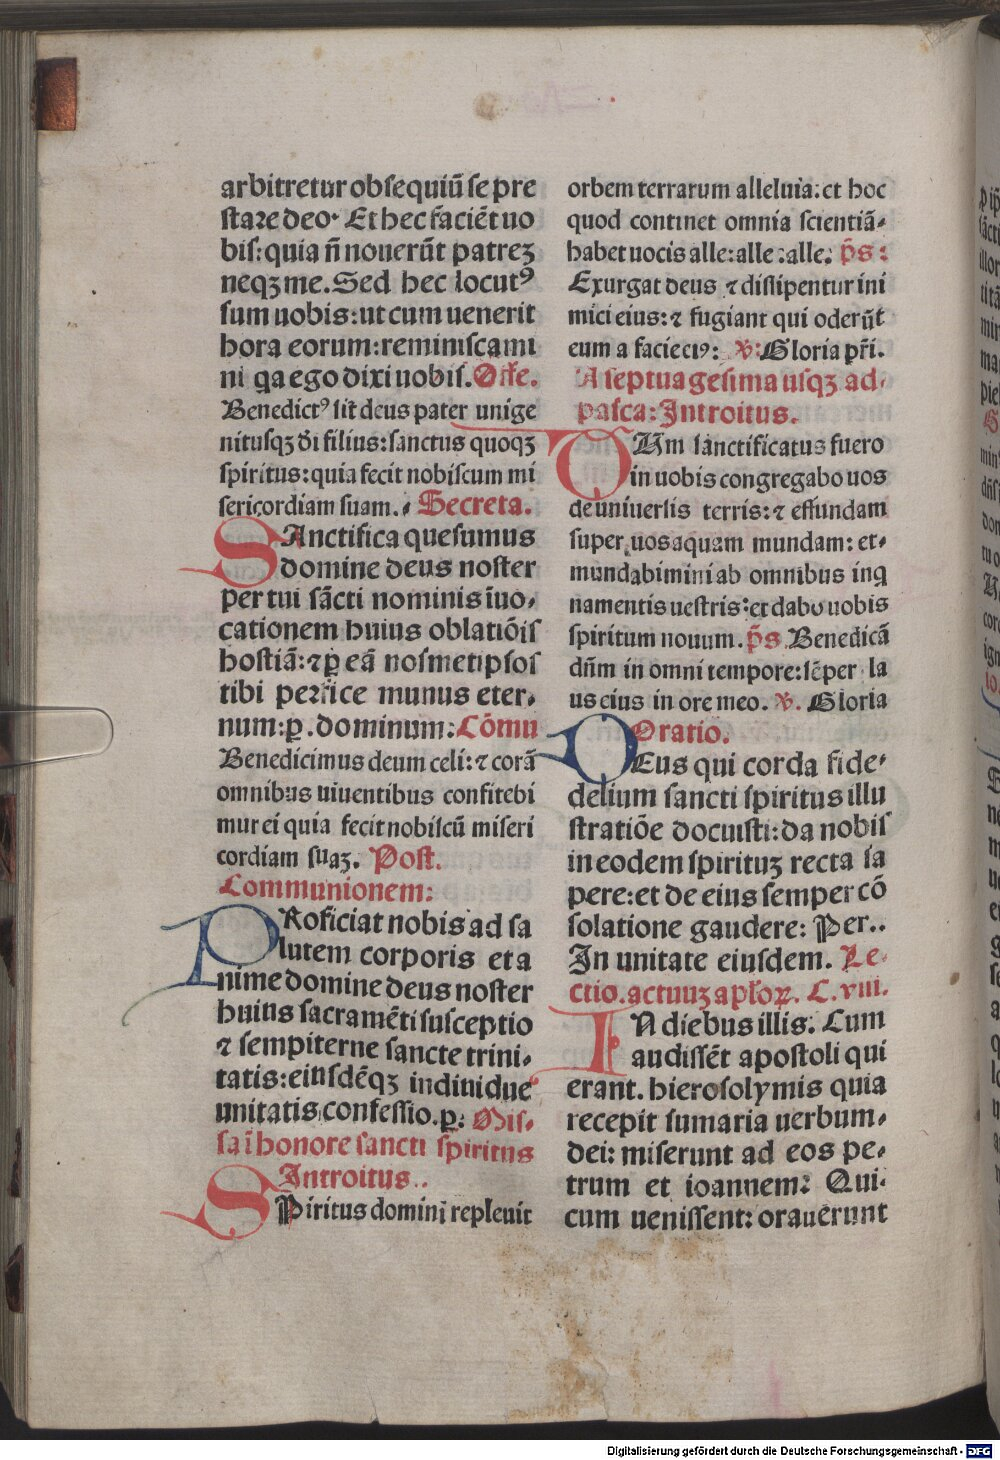 arbitretur obsequiū se pre
stare deo. Et hec faciēt uo
bis: quia n̄ nouerūt patreꝫ
neqꝫ me. Sed hec locutꝰ
sum uobis: ut cum uenerit
hora eorum: reminiscami
ni q̄a ego dixi uobis. Offe.
Benedictꝰ sit deus pater unige
nitusqꝫ d̄i filius: sanctus quoqꝫ
spiritus: quia fecit nobiscum mi
sericordiam suam. Secreta.
SAnctifica quesumus
domine deus noster
per tui sācti nominis īuo,
cationem huius oblatiōis
hostiā: ⁊ ꝑ eā nosmetipsos
tibi perfice munus eter,
num: ꝑ. dominum: Cōmu
Benedicimus deum celi: ⁊ corā
omnibus uiuentibus confitebi
mur ei quia fecit nobiscū miseri
cordiam suaꝫ. Post.
Communionem:
PRoficiat nobis ad sa
lutem corporis et a
nime domine deus noster
huius sacramēti susceptio
⁊ sempiterne sancte trini,
tatis: eiusdēqꝫ indiuidue
unitatis confessio. ꝑ: Mis,
sa ī honore sancti spiritus
Introitus..
SPiritus domini repleuit
orbem terrarum alleluia: et hoc
quod continet omnia scientiā,
habet uocis alle: alle: alle. p̄s:
Exurgat deus ⁊ dissipentur ini
mici eius: ⁊ fugiant qui oderūt
eum a facie eiꝰ: ℣: Gloria pr̄i.
A septuagesima usqꝫ ad
pasca: Introitus.
CUm sanctificatus fuero
in uobis congregabo uos
de uniuersis terris: ⁊ effundam
super uos aquam mundam: et,
mundabimini ab omnibus inq
namentis uestris: et dabo uobis
spiritum nouum. p̄s. Benedicā
dn̄m in omni tempore: sēper la
us eius in ore meo. ℣. Gloria
Oratio.
DEus qui corda fide,
delium sancti spiritus illu
stratiōe docuisti: da nobis
in eodem spirituꝫ recta sa
pere: et de eius semper cō
solatione gaudere: Per..
In unitate eiusdem. Le,
ctio. actuuꝫ apl̄oꝝ. C. viii.
IN diebus illis. Cum
audissēt apostoli qui
erant. hierosolymis quia
recepit samaria uerbum,
dei: miserunt ad eos pe,
trum et ioannem: Qui,
cum uenissent: orauerunt
Digitalisierung gefördert durch die Deutsche Forschungsgemeinschaft - DFG